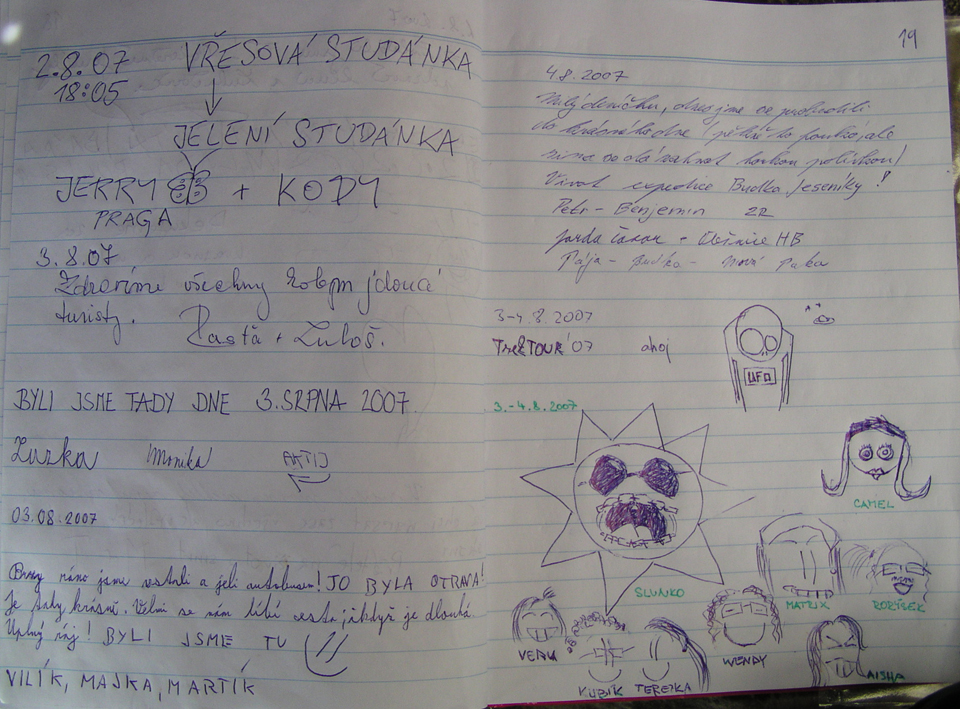 2.8.07 VŘESOVÁ STUDÁNKA
18:05
JELENÍ STUDÁNKA
JERRY + KODY
PRAGA
3.8.07
Zdravíme všechny kolem jdoucí
turisty.
Pastă + Luboš.
BYLI JSME TADY DNE 3. SRPNA 2007.
Zuzka Monika
03.08.2007
Brzy ráno jsme vstali a jeli autobusem! JO BYLA OTRAVA!
Je tady krásně. Velmi se nám líbí cesta, i když je dlouhá.
Úplný ráj! BYLI JSME TU
VILÍK, MAJKA, MARTÍK
19
4.8.2007
Milý deníčku, dnes jsme se probudili
do krásného dne
polívkou
Vivat expedice Budka Jeseníky!
Petr - Benjamin ZR
Jarda HB
Pája - Budka - Nová Paka
3-4.8.2007
TrekTOUR'07 ahoj
UFO
3.-4.8.2007
CAMEL
SLUNKO
MATRIX
RORÝSEK
VERU
WENDY
KUBÍK TEREJKA
AISHA